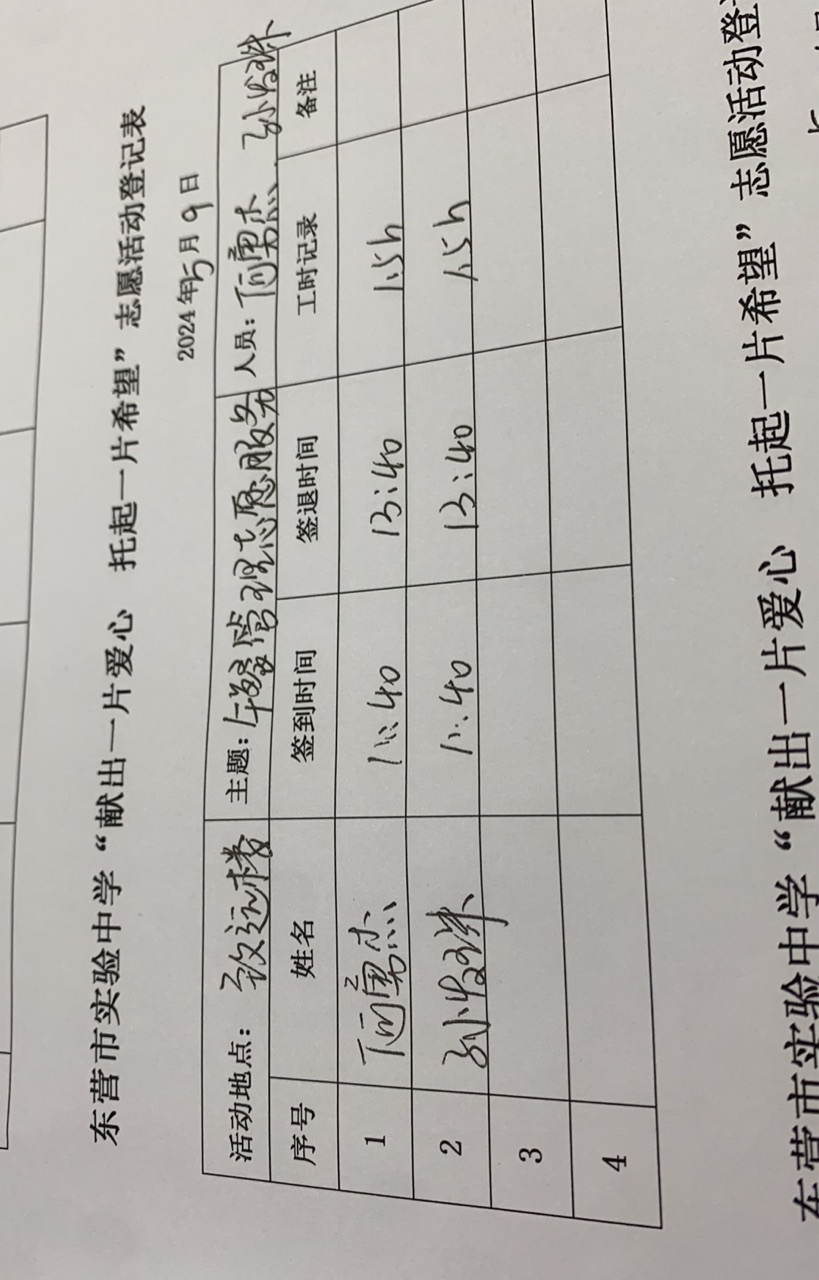 东营市实验中学“献出一片爱心 托起一片希望”志愿活动登记表
2024年5月9日
活动地点：致远楼 主题：午餐管理志愿服务 人员：
序号 姓名 签到时间 签退时间 工时记录 备注
1 11:40 13:40 1.5h
2 11:40 13:40 1.5h
3
4
东营市实验中学“献出一片爱心 托起一片希望”志愿活动登